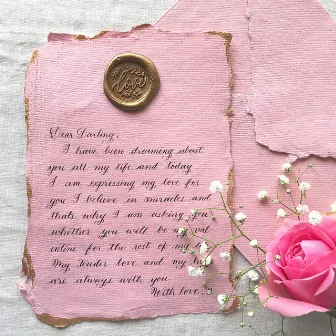 Dear Darling,
I have been dreaming about
you all my life and today
I am expressing my love for
you I believe in miracles and
thats why I am asking you
whether you will be my val
entine for the rest of my
My tender love and my
are always with you
With love